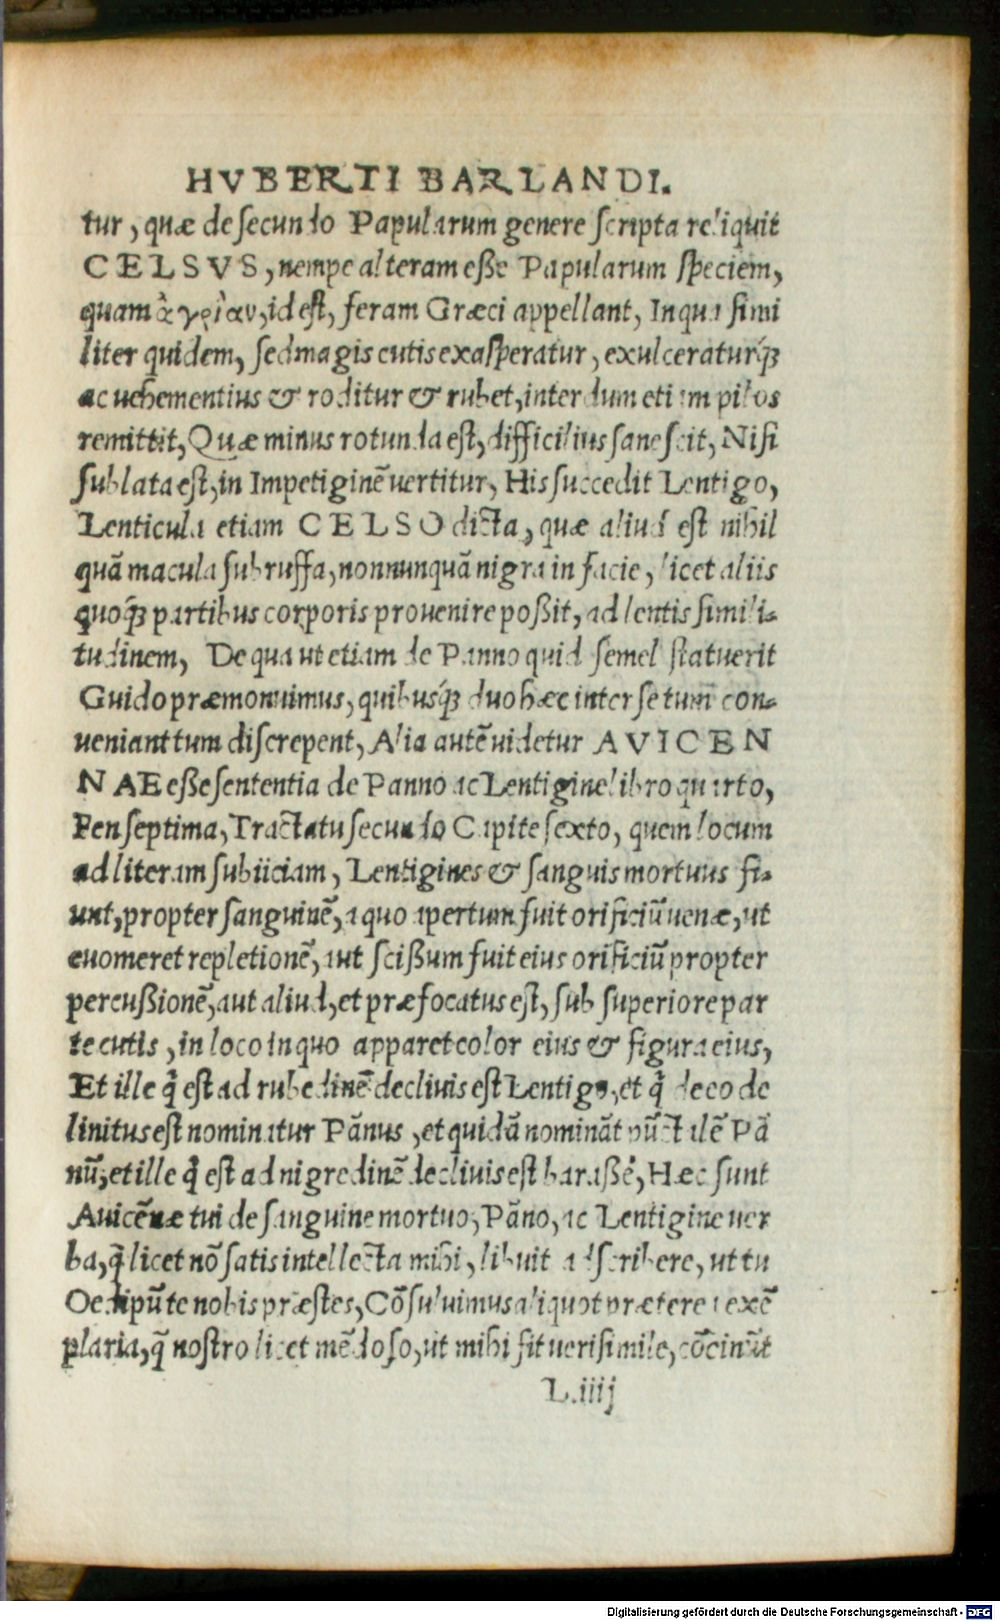 HVBERTI BARLANDI.
tur, quæ de secundo Papularum genere scripta reliquit
CELSVS, nempe alteram eße Papularum speciem,
quam ἀγρίαν, id est, feram Græci appellant, In qua simi
liter quidem, sed magis cutis exasperatur, exulceraturq́;
ac uehementius & roditur & rubet, interdum etiam pilos
remittit, Quæ minus rotunda est, difficilius sanescit, Nisi
sublata est, in Impetiginē uertitur, His succedit Lentigo,
Lenticula etiam CELSO dicta, quæ aliud est nihil
quā macula subruffa, nonnunquā nigra in facie, licet aliis
quoq́; partibus corporis prouenire poßit, ad lentis simili-
tudinem, De qua ut etiam de Panno quid semel statuerit
Guido præmonuimus, quibusq́; duo hæc inter se tum con-
ueniant tum discrepent, Alia autē uidetur AVICEN
NAE eße sententia de Panno ac Lentigine libro quarto,
Fen septima, Tractatu secundo Capite sexto, quem locum
ad literam subiiciam, Lentigines & sanguis mortuus fi-
unt, propter sanguinē, a quo apertum fuit orificiū uenæ, ut
euomeret repletionē, aut scißum fuit eius orificiū propter
percußionē, aut aliud, et præfocatus est, sub superiore par
te cutis, in loco in quo apparet color eius & figura eius,
Et ille q̃ est ad rubedinē decliuis est Lentigo, et q̃ de eo de
linitus est nominatur Pānus, et quidā nomināt pūctalē Pā
nū, et ille q̃ est ad nigredinē decliuis est baraßē, Hæc sunt
Auicēnæ tui de sanguine mortuo, Pāno, ac Lentigine uer
ba, q̃ licet nō satis intellecta mihi, libuit adscribere, ut tu
Oedipū te nobis præstes, Cōsuluimus aliquot præterea exē
plaria, q̃ nostro licet mēdoso, ut mihi fit uerisimile, cōcinūt
L.iiij
Digitalisierung gefördert durch die Deutsche Forschungsgemeinschaft - DFG